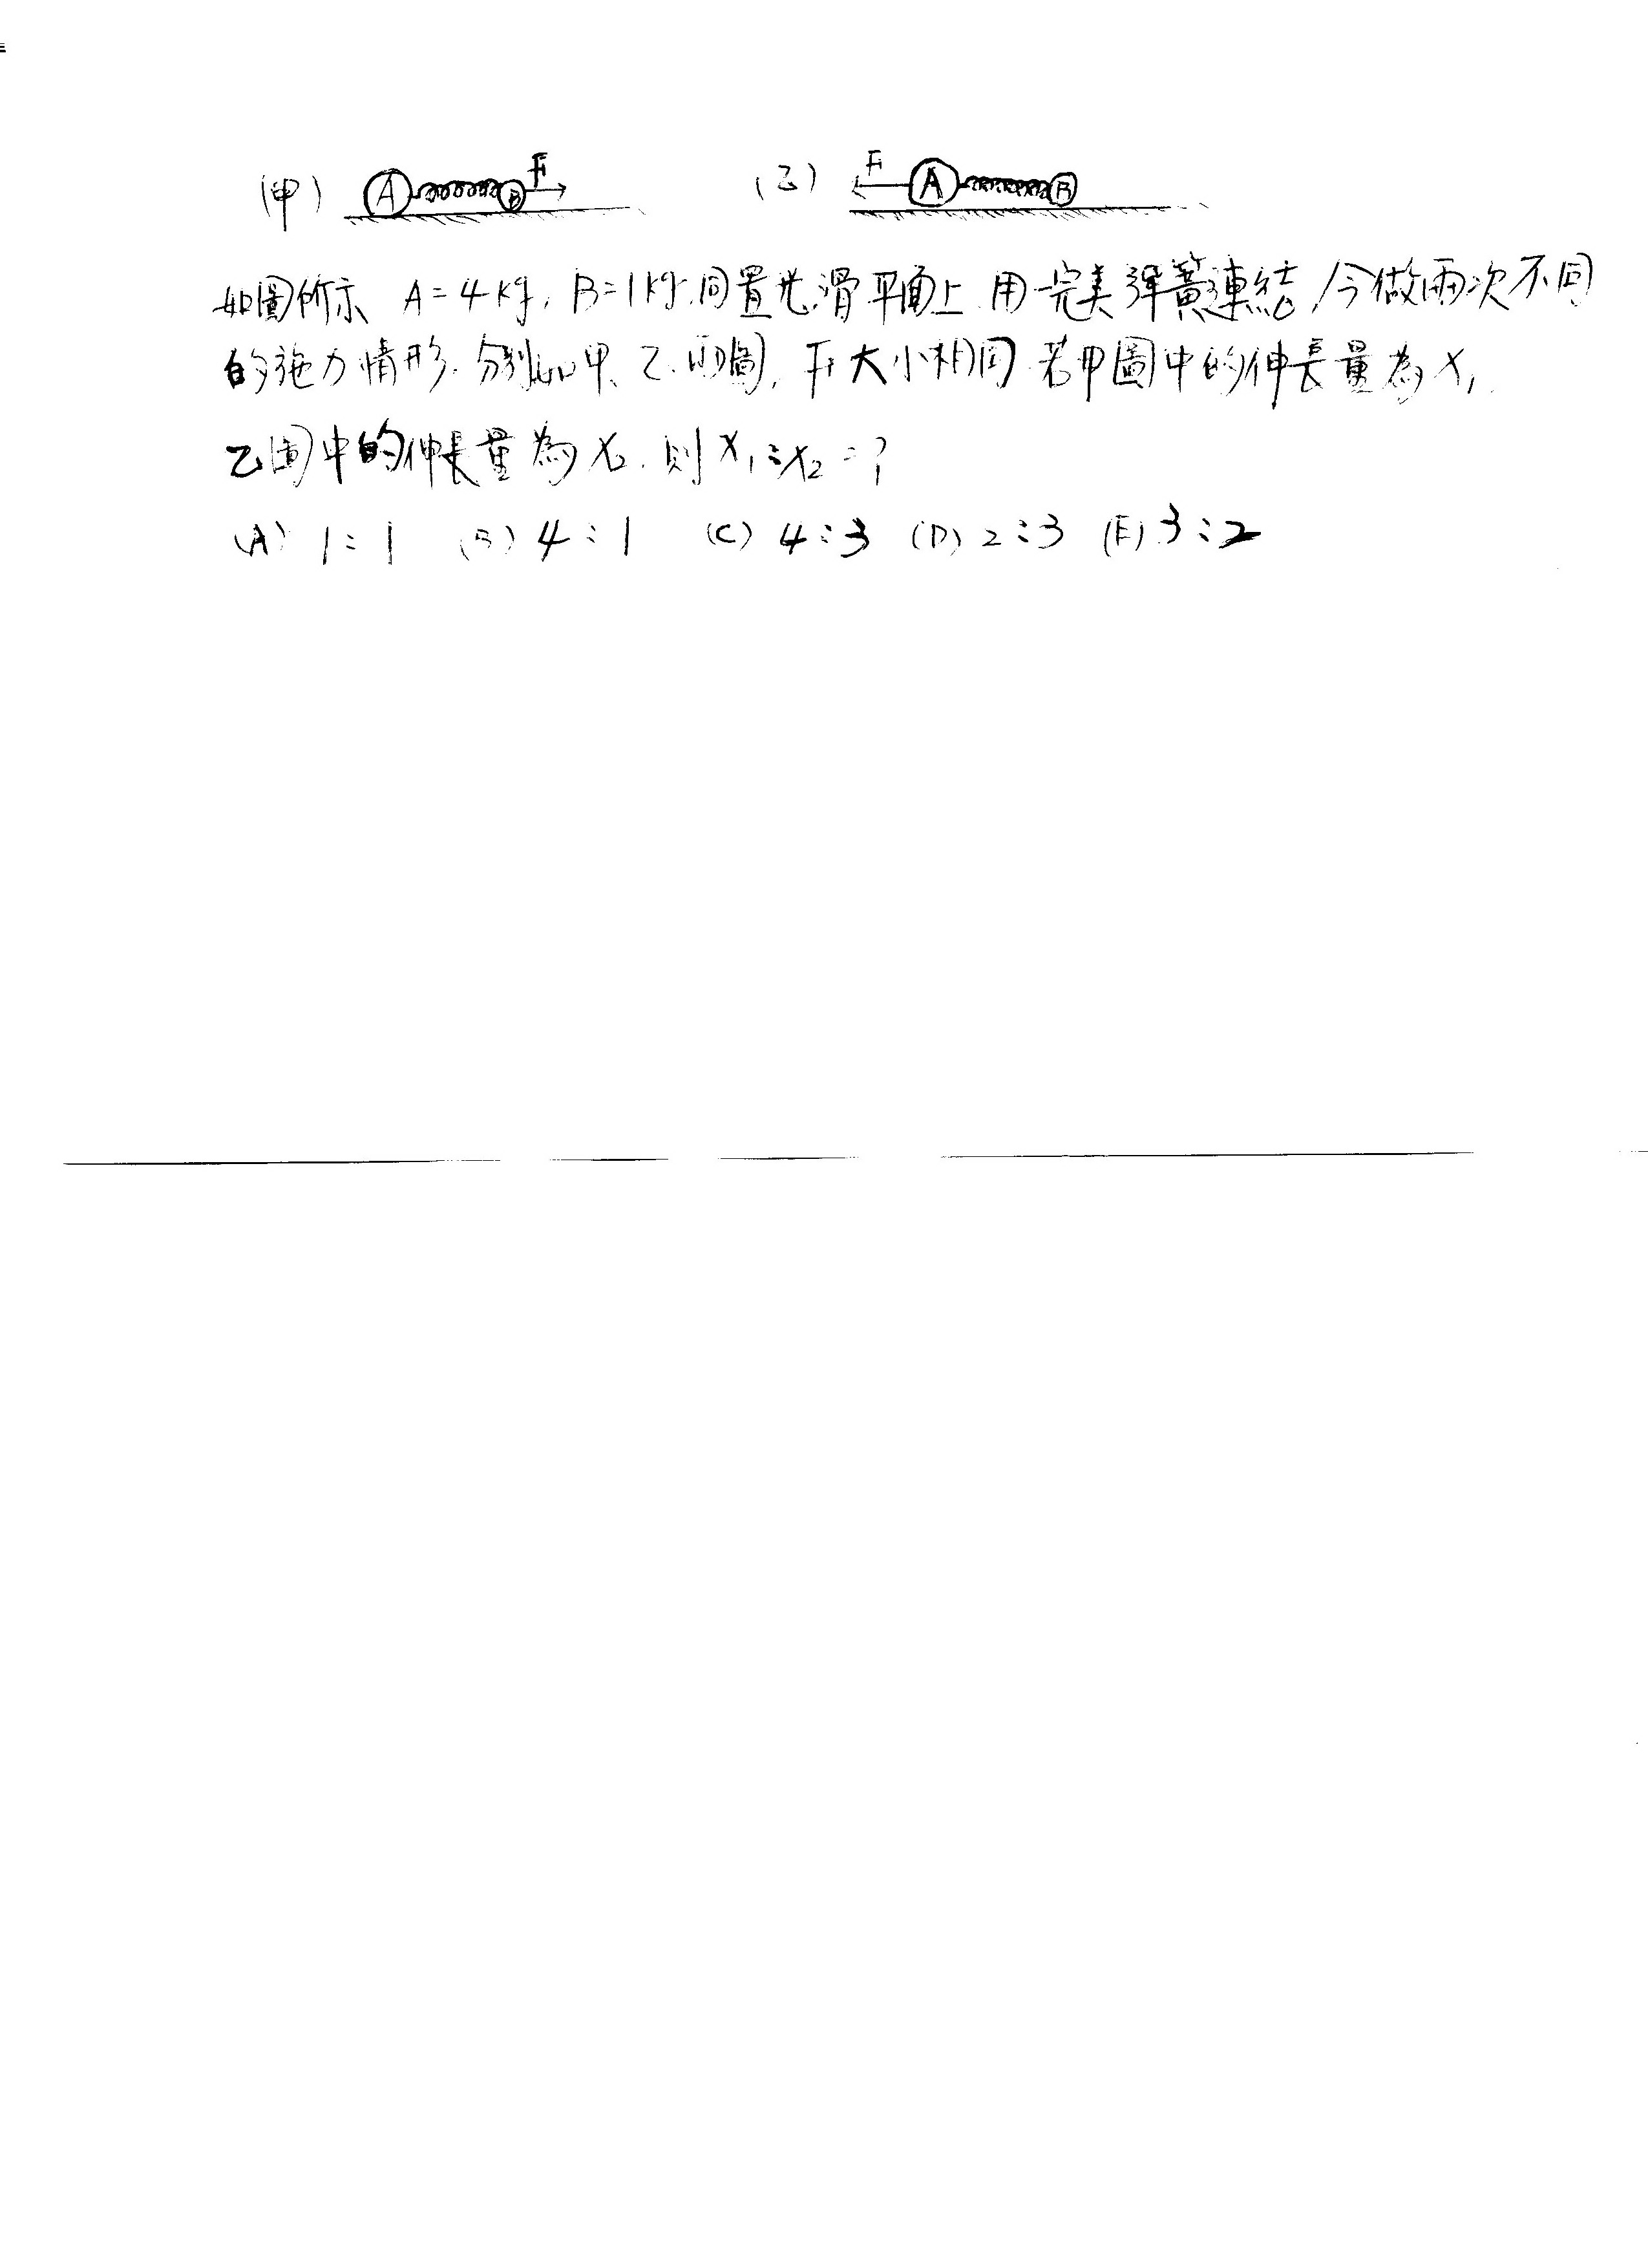 (甲) A B F (乙) F A B
如圖所示 A=4kg, B=1kg.同置光滑平面上 用一完美彈簧連結,今做兩次不同
的施力情形.分別如甲、乙.兩圖, F大小相同.若甲圖中的伸長量為X₁.
乙圖中的伸長量為X₂.則X₁:X₂=?
(A) 1:1 (B) 4:1 (C) 4:3 (D) 2:3 (E) 3:2